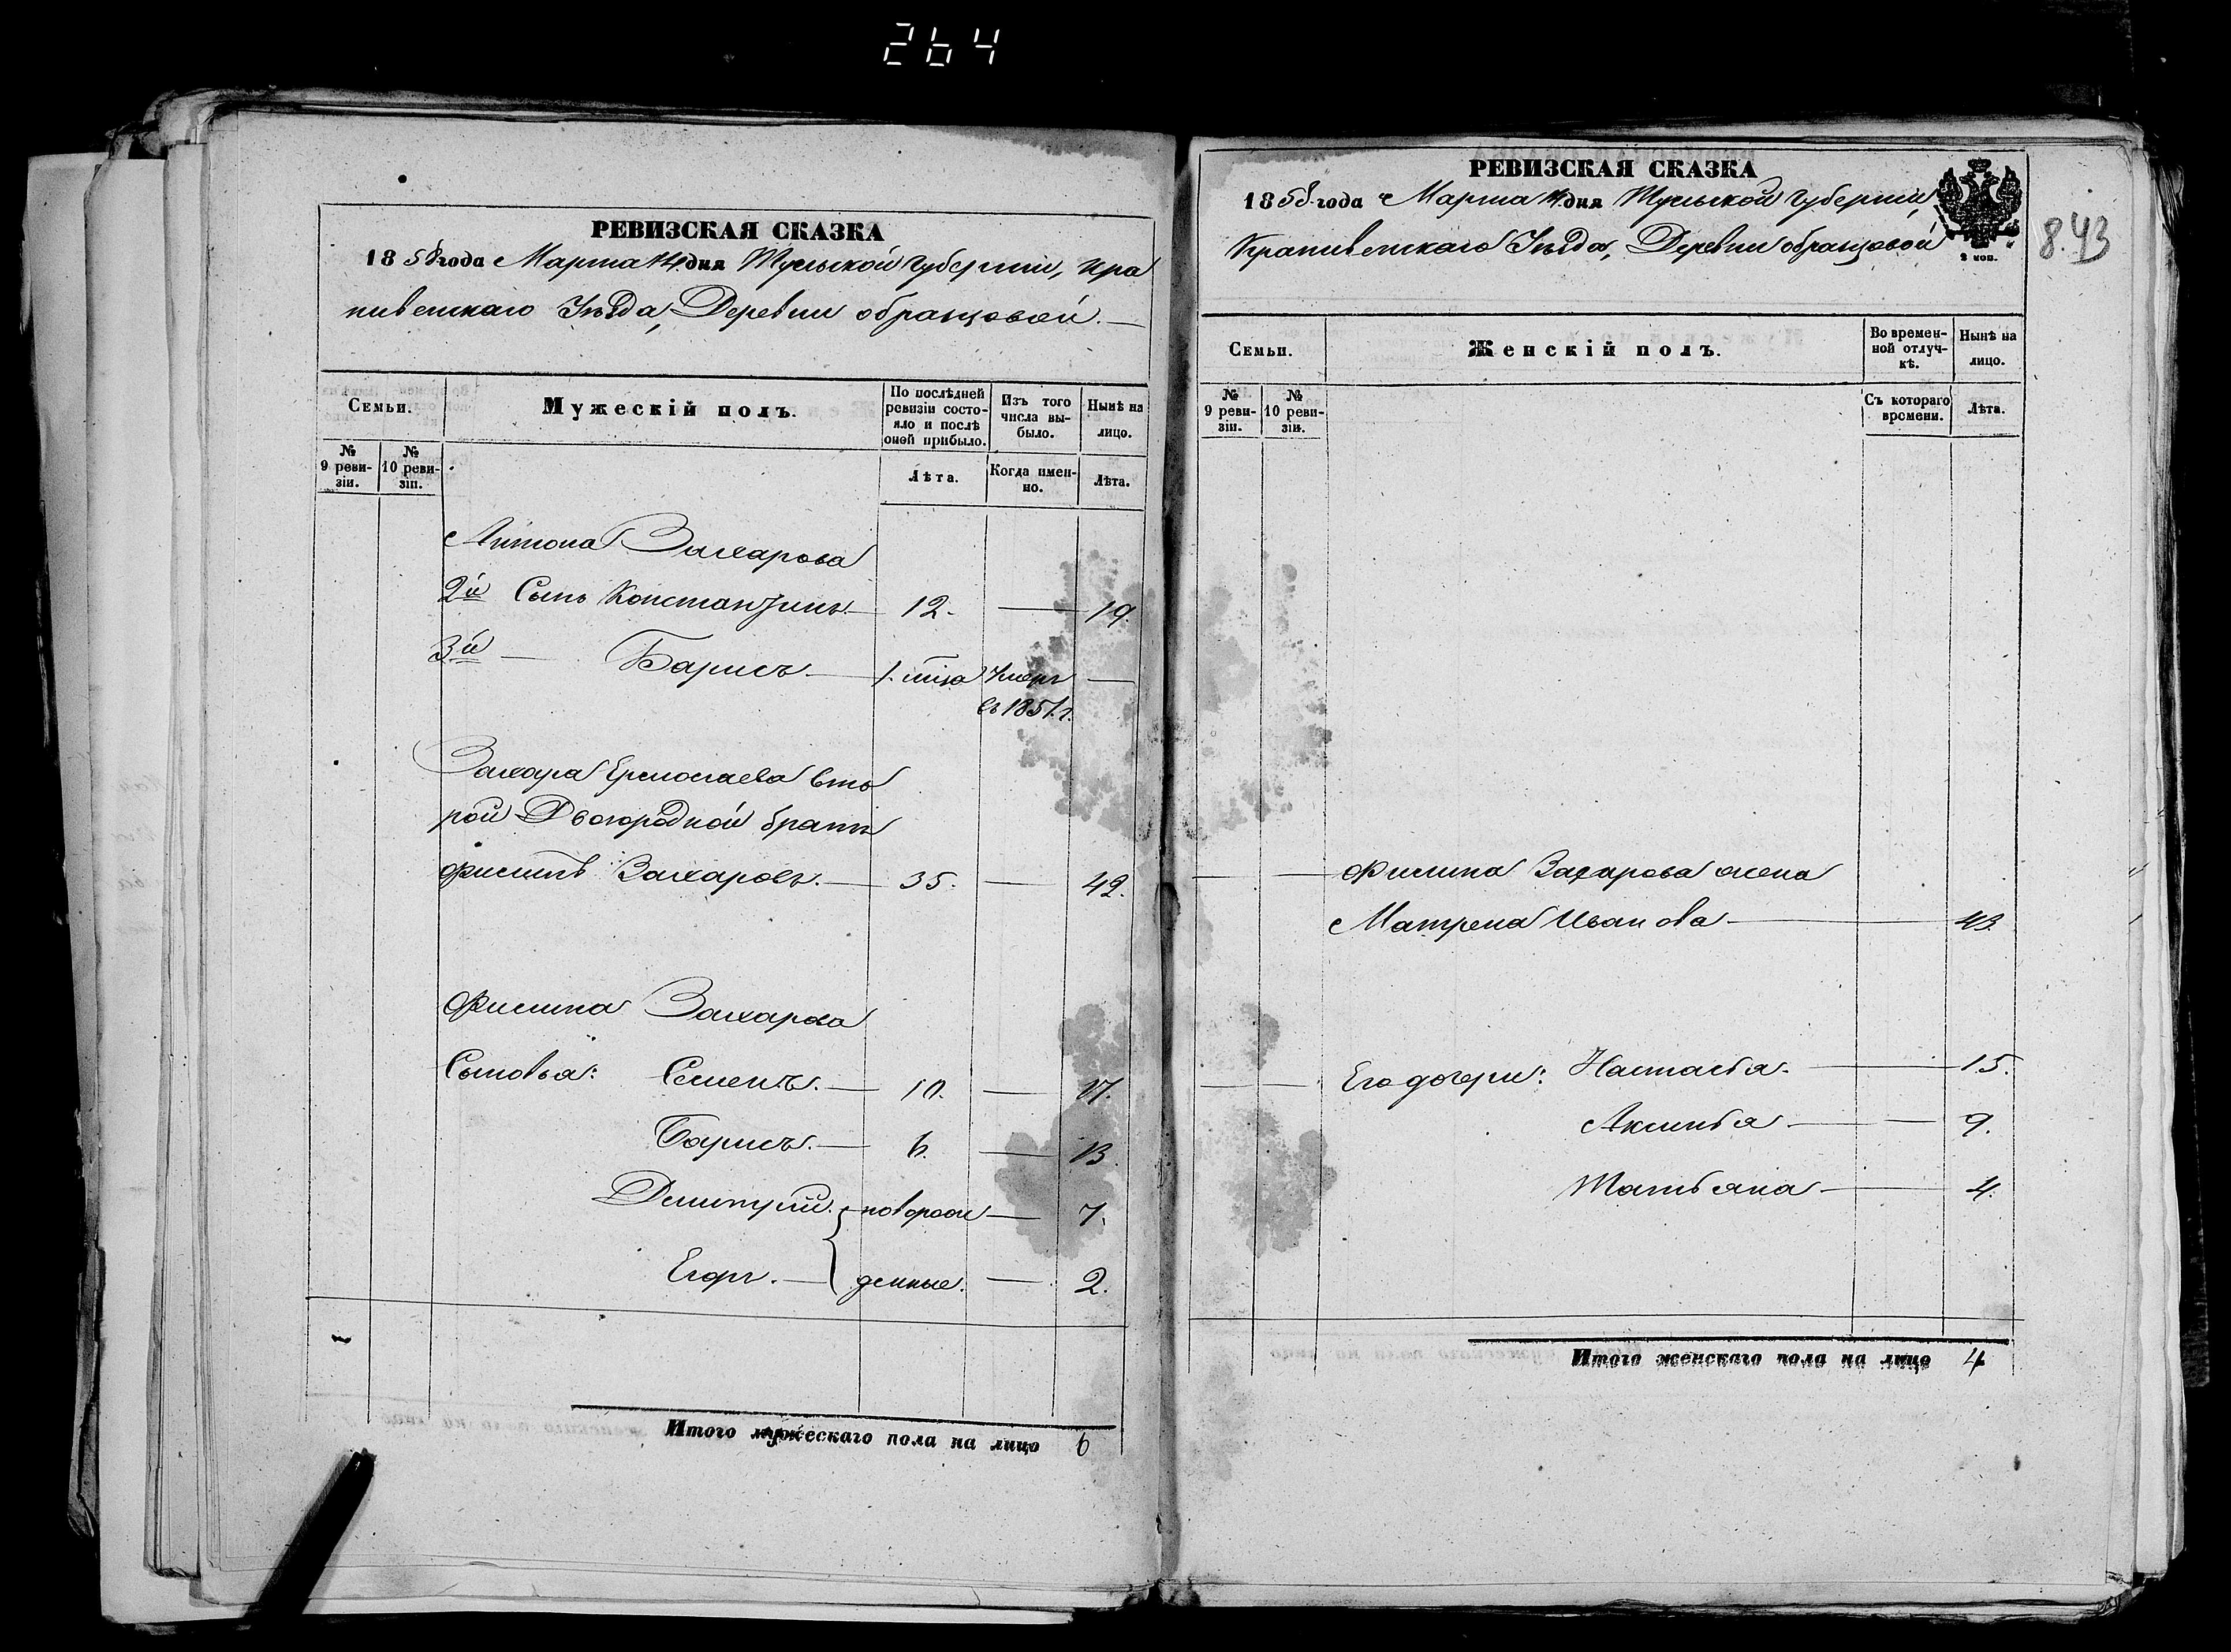 264
РЕВИЗСКАЯ СКАЗКА
1858 года Марта 14 дня Тульской Губернии, Кра
пивенскаго Уѣзда, Деревни образцовой.
Семьи.
Мужескій полъ.
По послѣдней ревизіи состояло и послѣ оной прибыло.
Изъ того числа выбыло.
Нынѣ на лицо.
№ 9 ревизіи.
№ 10 ревизіи.
Лѣта.
Когда именно.
Лѣта.
Антона Захарова
2й Сынъ Константинъ. 12. 19.
3й Барисъ. 1. Умеръ
въ 1851. г.
Захара Ермолаева вто
рой Двоюродной братъ
Филипъ Захаровъ. 35. 42.
Филипа Захарова
Сыновья: Семенъ. 10. 17.
Борисъ. 6. 13.
Димитрий. новорож 7.
Егоръ. денные. 2.
Итого мужескаго пола на лицо 6
РЕВИЗСКАЯ СКАЗКА
1858 года Марта 14 дня Тульской Губернии,
Крапивенскаго Уѣзда, Деревни образцовой
2 коп.
843
Семьи.
Женскій полъ.
Во временной отлучкѣ.
Нынѣ на лицо.
№ 9 ревизіи.
№ 10 ревизіи.
Съ котораго времени.
Лѣта.
Филипа Захарова жена
Матрена Иванова 43.
Его дочери: Настасья. 15.
Аксинья 9.
Татьяна 4.
Итого женскаго пола на лицо 4